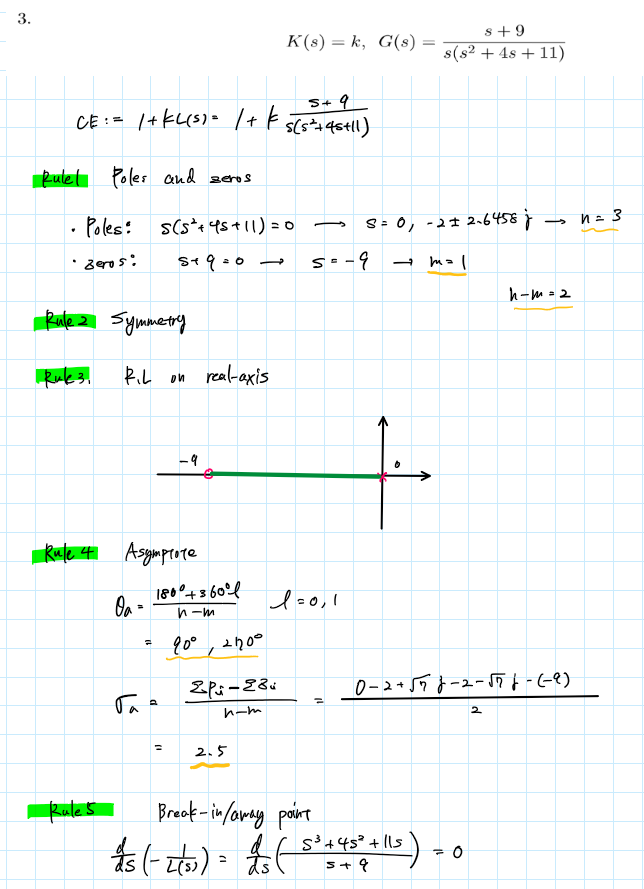 3.
K(s) = k, G(s) = (s + 9) / (s(s² + 4s + 11))
CE := 1 + kL(s) = 1 + k (s + 9) / (s(s² + 4s + 11))
Rule1 Poles and zeros
· Poles: s(s² + 4s + 11) = 0 → s = 0, -2 ± 2.6458 j → n = 3
· zeros: s + 9 = 0 → s = -9 → m = 1
n - m = 2
Rule 2 Symmetry
Rule 3. R.L on real-axis
-9 0
Rule 4 Asymptote
θa = (180° + 360°l) / (n - m) l = 0, 1
= 90°, 270°
σa = (Σpi - Σzi) / (n - m) = (0 - 2 + √7 j - 2 - √7 j - (-9)) / 2
= 2.5
Rule 5 Break-in/away point
d/ds (- 1/L(s)) = d/ds ((s³ + 4s² + 11s) / (s + 9)) = 0